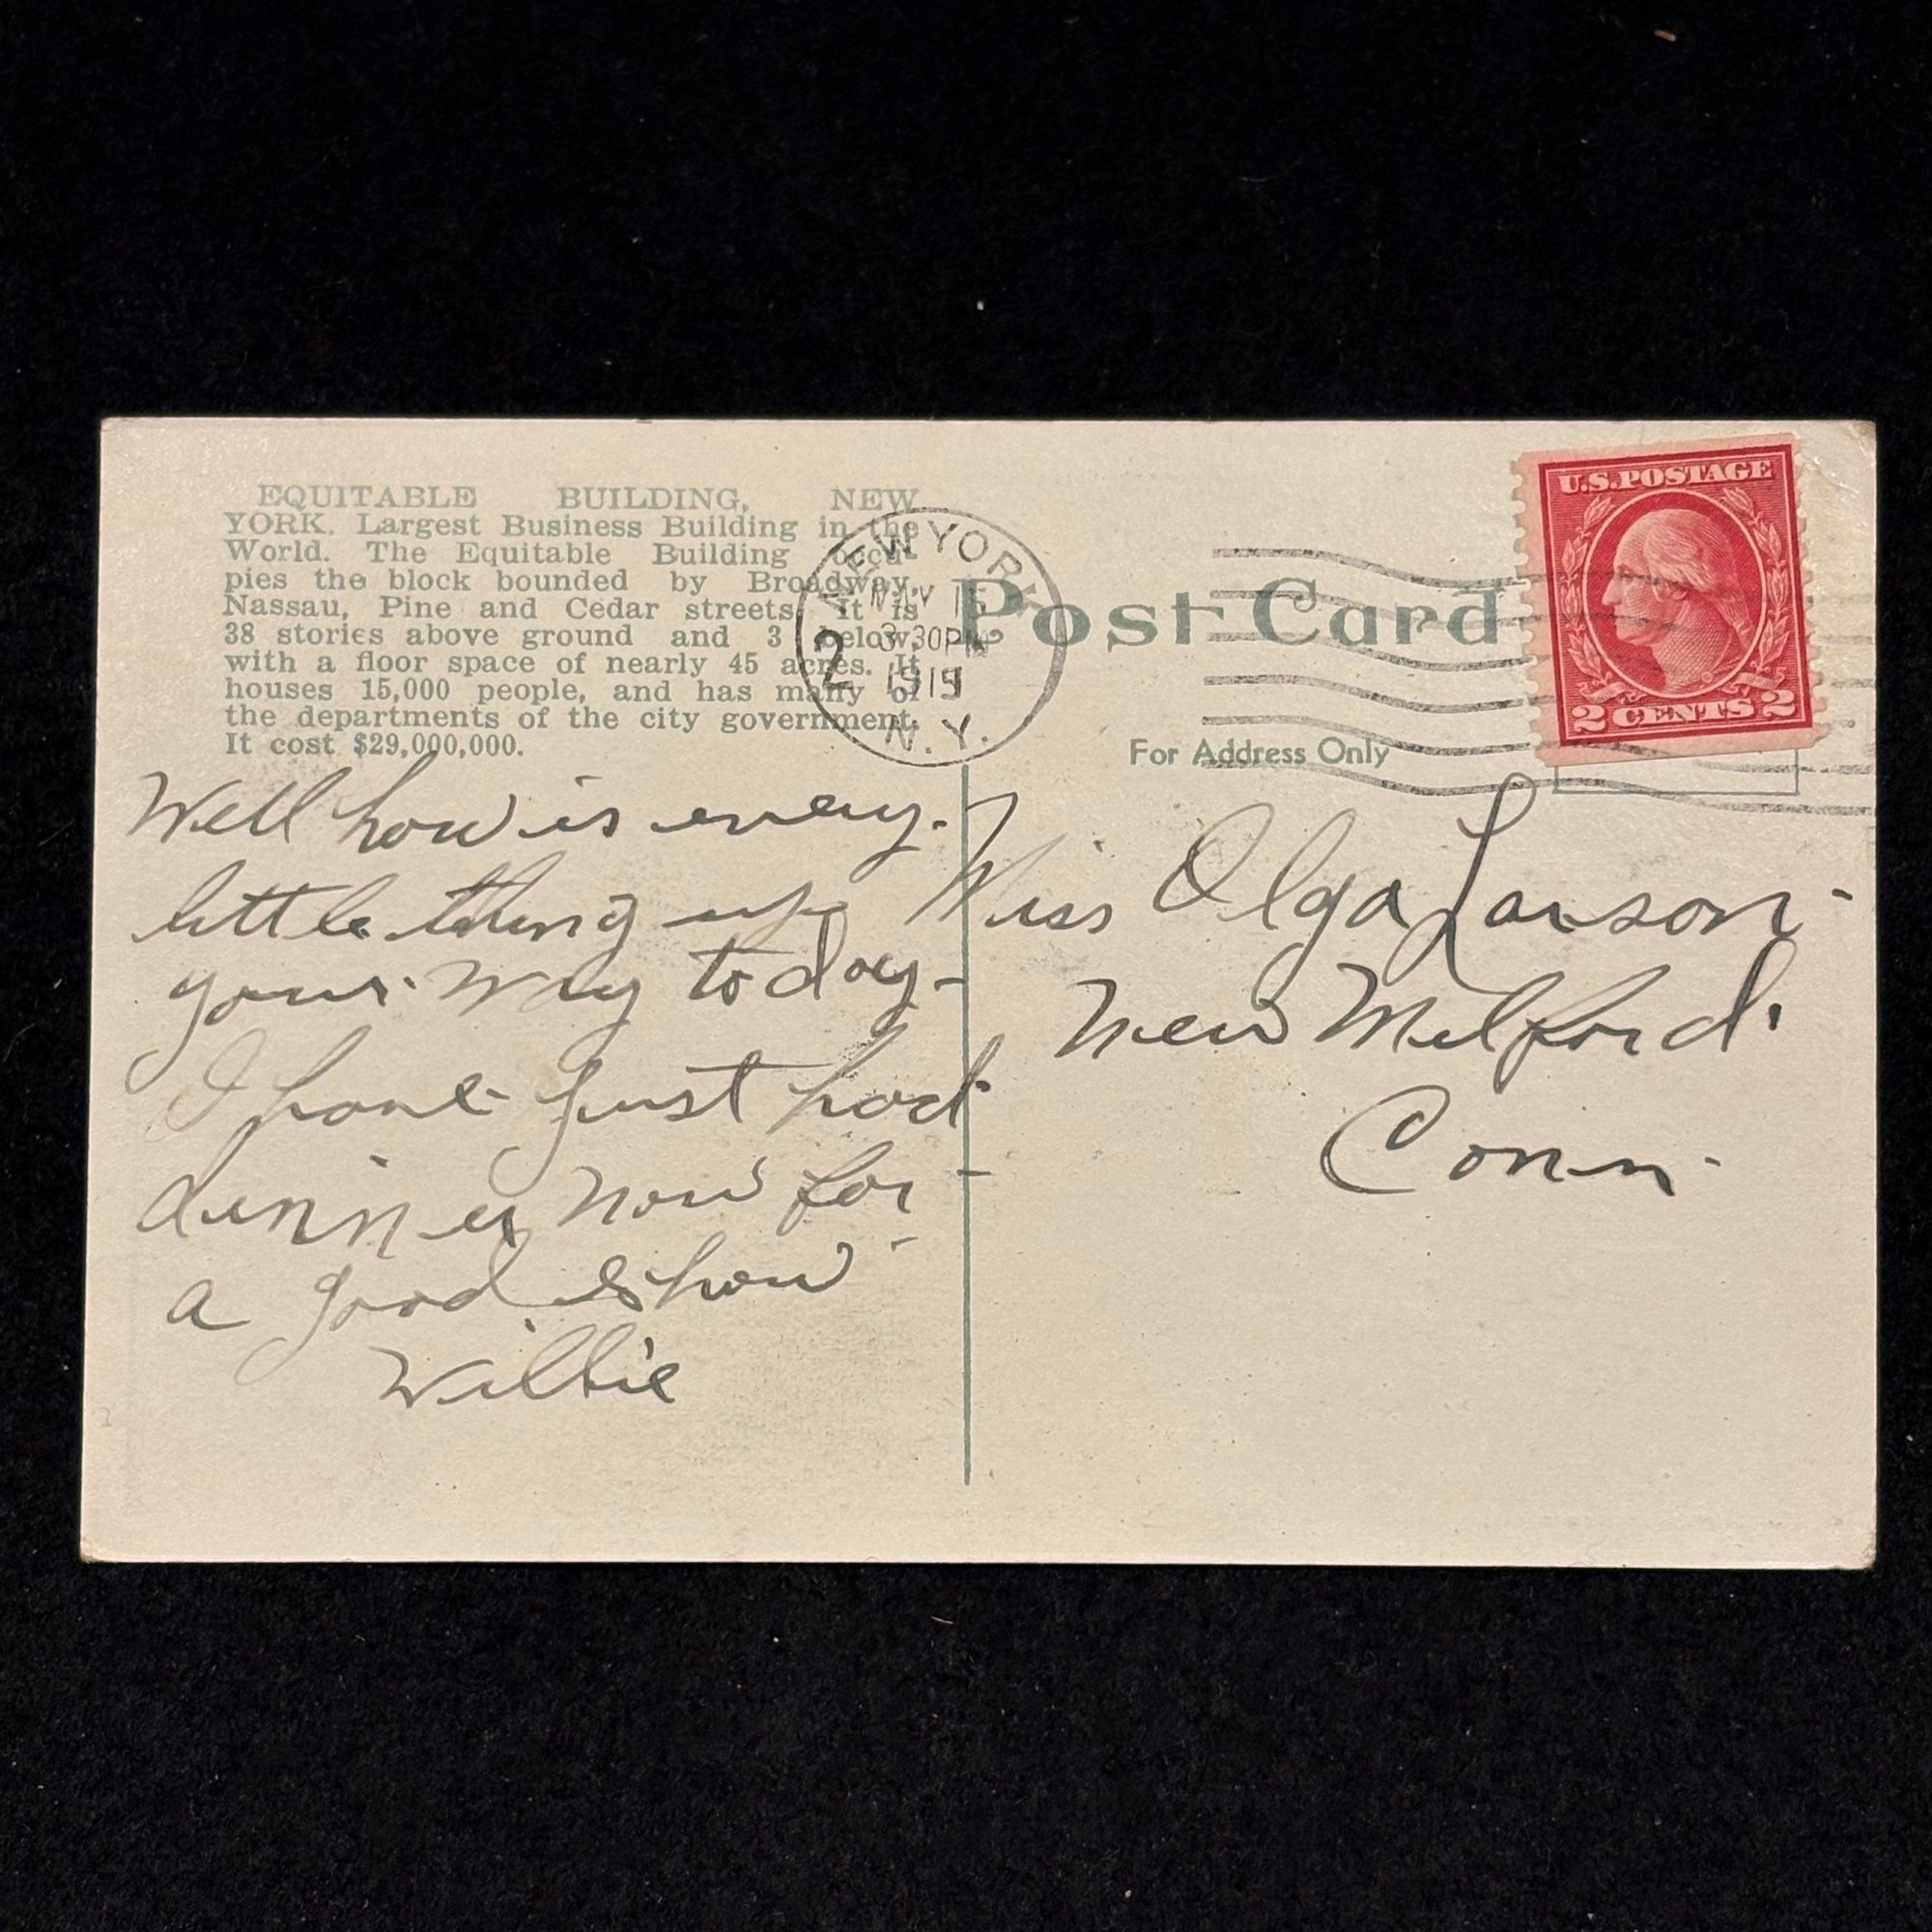 EQUITABLE BUILDING, NEW
YORK. Largest Business Building in the
World. The Equitable Building occu-
pies the block bounded by Broadway,
Nassau, Pine and Cedar streets. It is
38 stories above ground and 3 below,
with a floor space of nearly 45 acres. It
houses 15,000 people, and has many of
the departments of the city government.
It cost $29,000,000.
NEW YORK
3 30PM
2 1919
N.Y.
Post Card
For Address Only
U.S. POSTAGE
2 CENTS 2
Well how is every
little thing up
your way today-
I have just had
dinner now for-
a good show
Willie
Miss Olga Larson-
New Milford.
Conn-